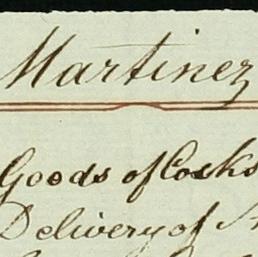 Martinez
Goods of Cocks
Delivery of